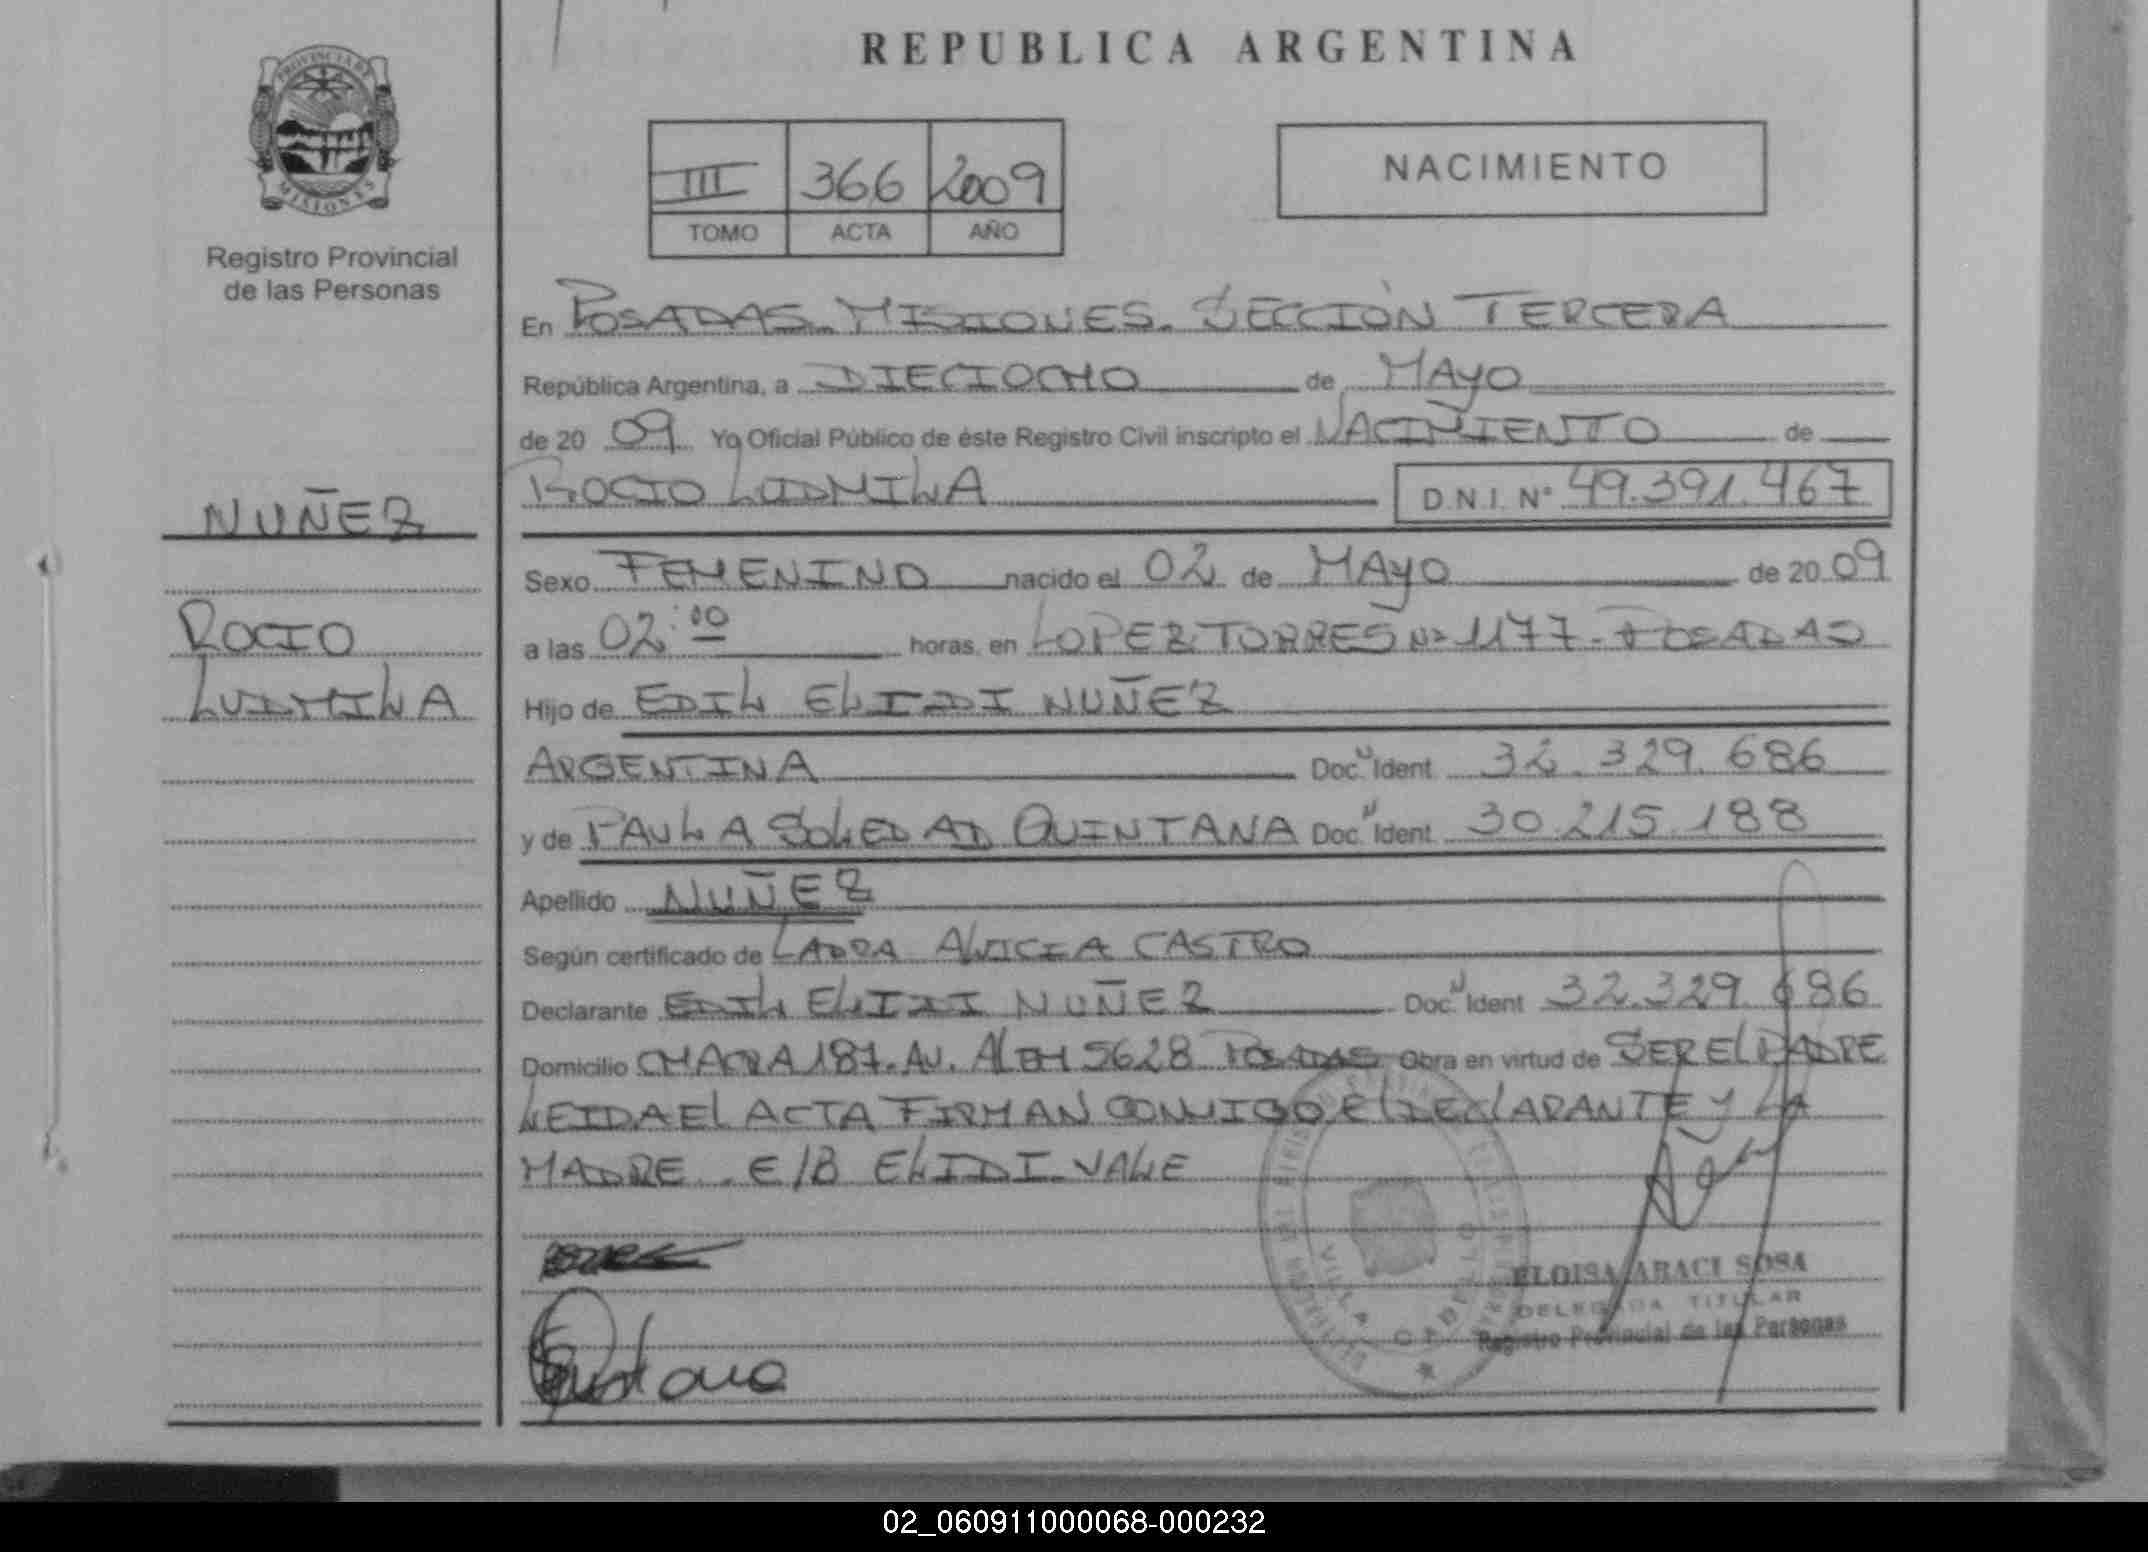 REPUBLICA ARGENTINA
PROVINCIA DE
MISIONES
Registro Provincial
de las Personas
III 366 2009
TOMO ACTA AÑO
NACIMIENTO
En POSADAS. MISIONES. SECCIÓN TERCERA
República Argentina, a DIECIOCHO de MAYO
de 20 09 Yo Oficial Público de éste Registro Civil inscripto el NACIMIENTO de
ROCIO LUDMILA D.N.I. Nº 49.391.467
NUÑEZ
ROCIO
LUDMILA
Sexo FEMENINO nacido el 02 de MAYO de 20 09
a las 02:00 horas, en LOPEZ TORRES Nº 1177 - POSADAS
Hijo de EDIL ELIDI NUÑEZ
ARGENTINA Doc. Ident 32.329.686
y de PAULA SOLEDAD QUINTANA Doc. Ident 30.215.188
Apellido NUÑEZ
Según certificado de LAURA ALICIA CASTRO
Declarante EDIL ELIDI NUÑEZ Doc. Ident 32.329.686
Domicilio CHACRA 187. AV. ALEM 5628 POSADAS Obra en virtud de SER EL PADRE
LEIDA EL ACTA FIRMAN CONMIGO EL DECLARANTE Y LA
MADRE. E/B ELIDI VALE
VILLA CABELLO
ELOISA ARACI SOSA
DELEGADA TITULAR
Registro Provincial de las Personas
02_060911000068-000232